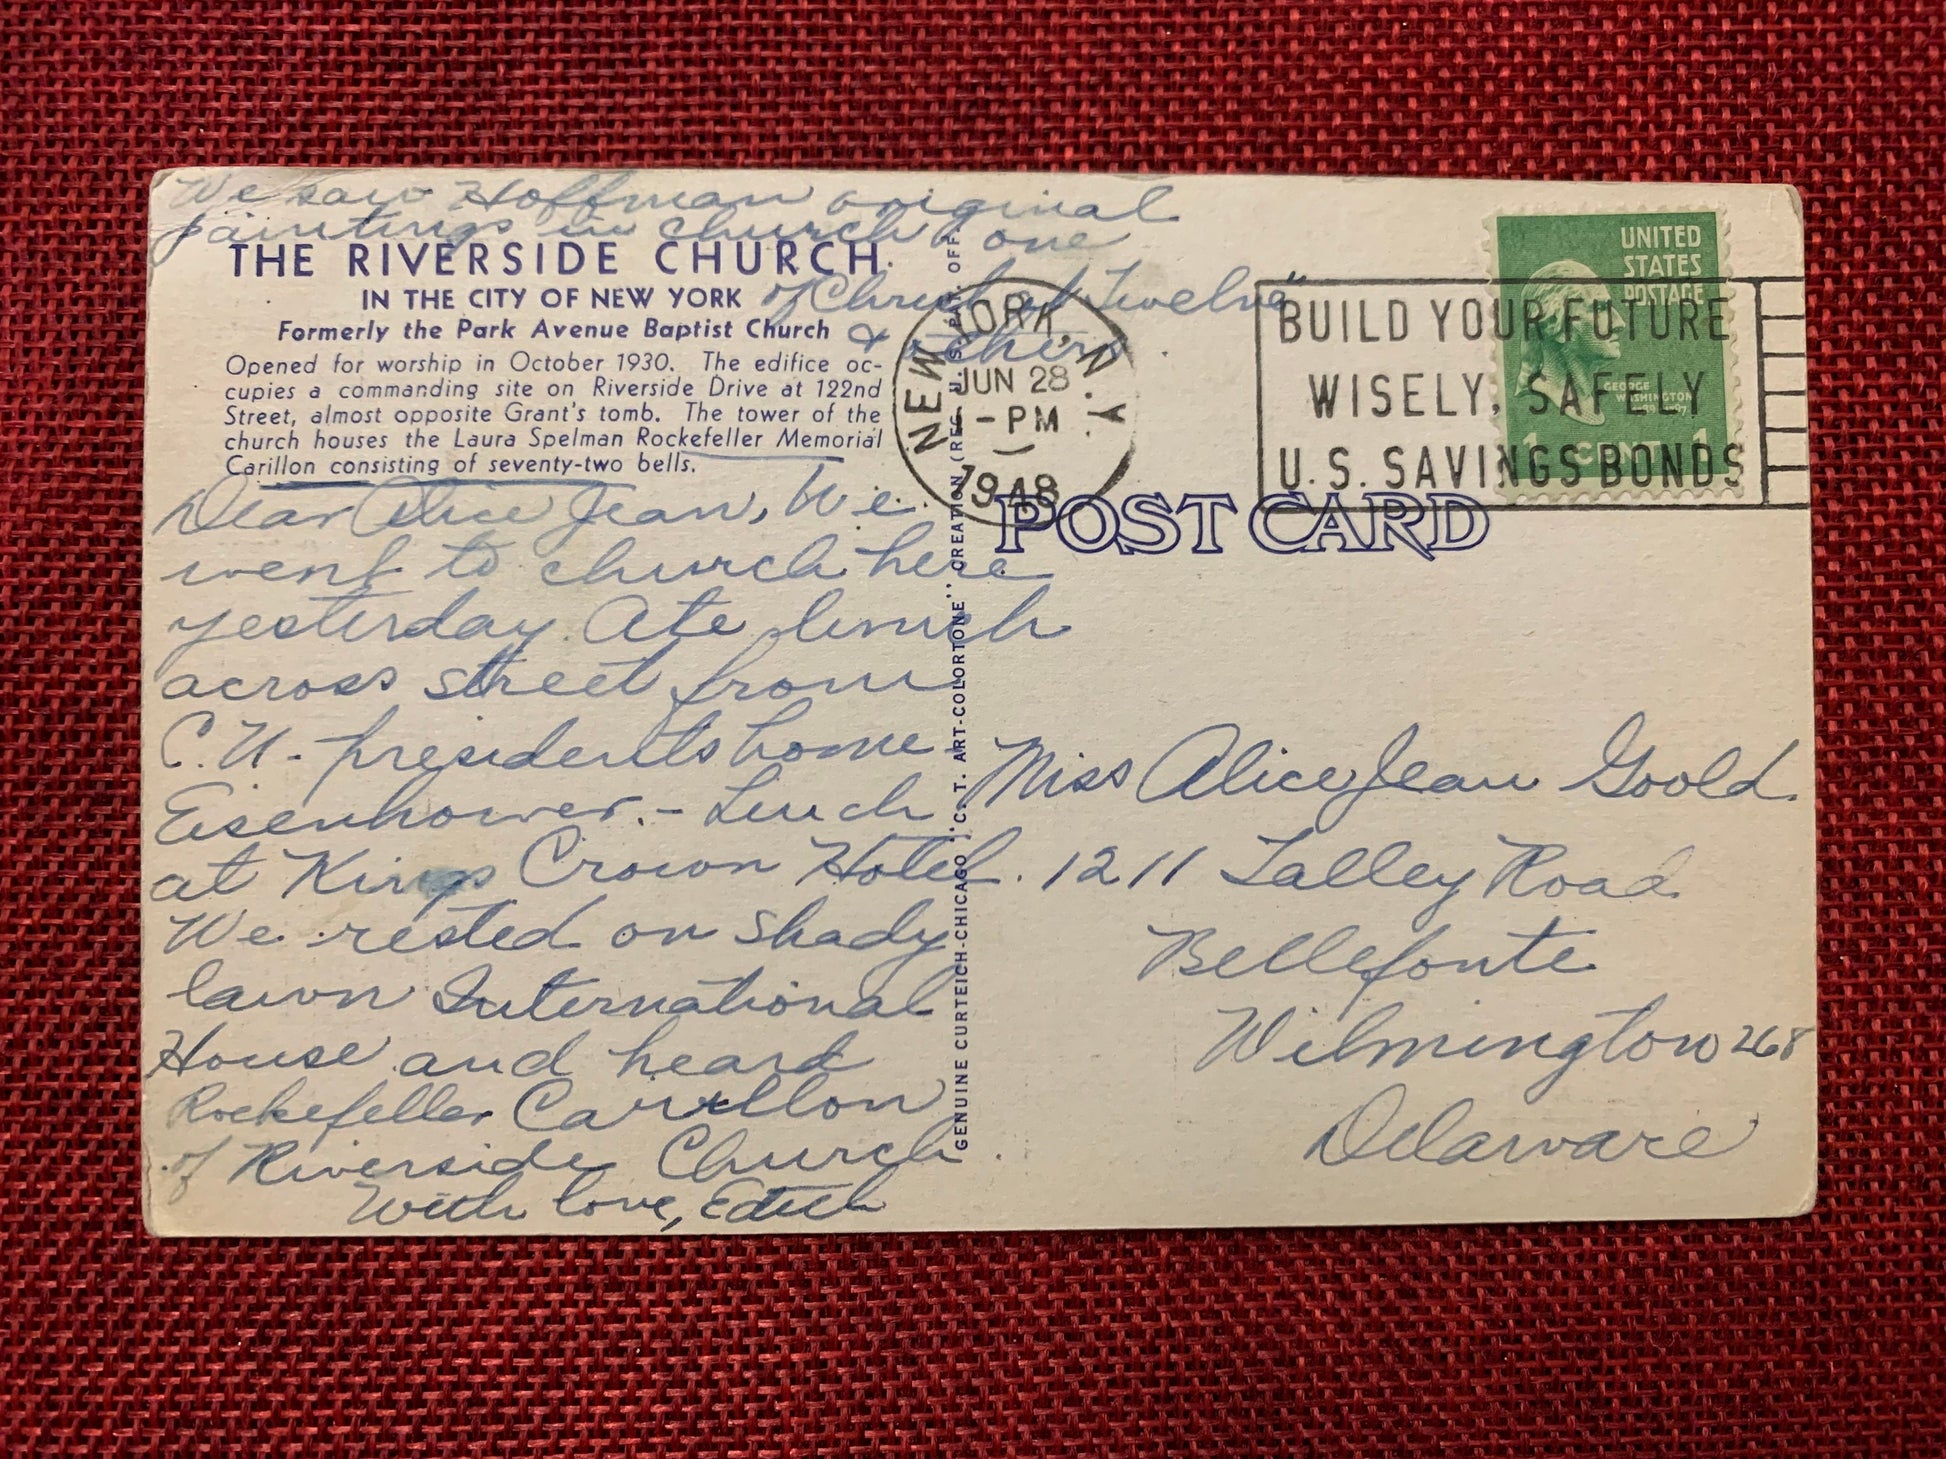 We saw Hoffman original
paintings in church one
of Christ at Twelve"
& others
THE RIVERSIDE CHURCH
IN THE CITY OF NEW YORK
Formerly the Park Avenue Baptist Church
Opened for worship in October 1930. The edifice oc-
cupies a commanding site on Riverside Drive at 122nd
Street, almost opposite Grant's tomb. The tower of the
church houses the Laura Spelman Rockefeller Memorial
Carillon consisting of seventy-two bells.
Dear Alice Jean, We
went to church here
yesterday. Ate lunch
across street from
C.U. presidents home -
Eisenhower. - Lunch
at Kings Crown Hotel.
We rested on shady
lawn International
House and heard
Rockefeller Carillon
of Riverside Church.
With love, Edith
GENUINE CURTEICH-CHICAGO "C. T. ART-COLORTONE" CREATION (REG. U. S. PAT. OFF.)
NEW YORK, N.Y.
JUN 28
1-PM
1948
BUILD YOUR FUTURE
WISELY, SAFELY
U.S. SAVINGS BONDS
UNITED
STATES
POSTAGE
GEORGE
WASHINGTON
1 CENT 1
POST CARD
Miss Alice Jean Goold.
1211 Talley Road
Bellefonte
Wilmington 268
Delaware